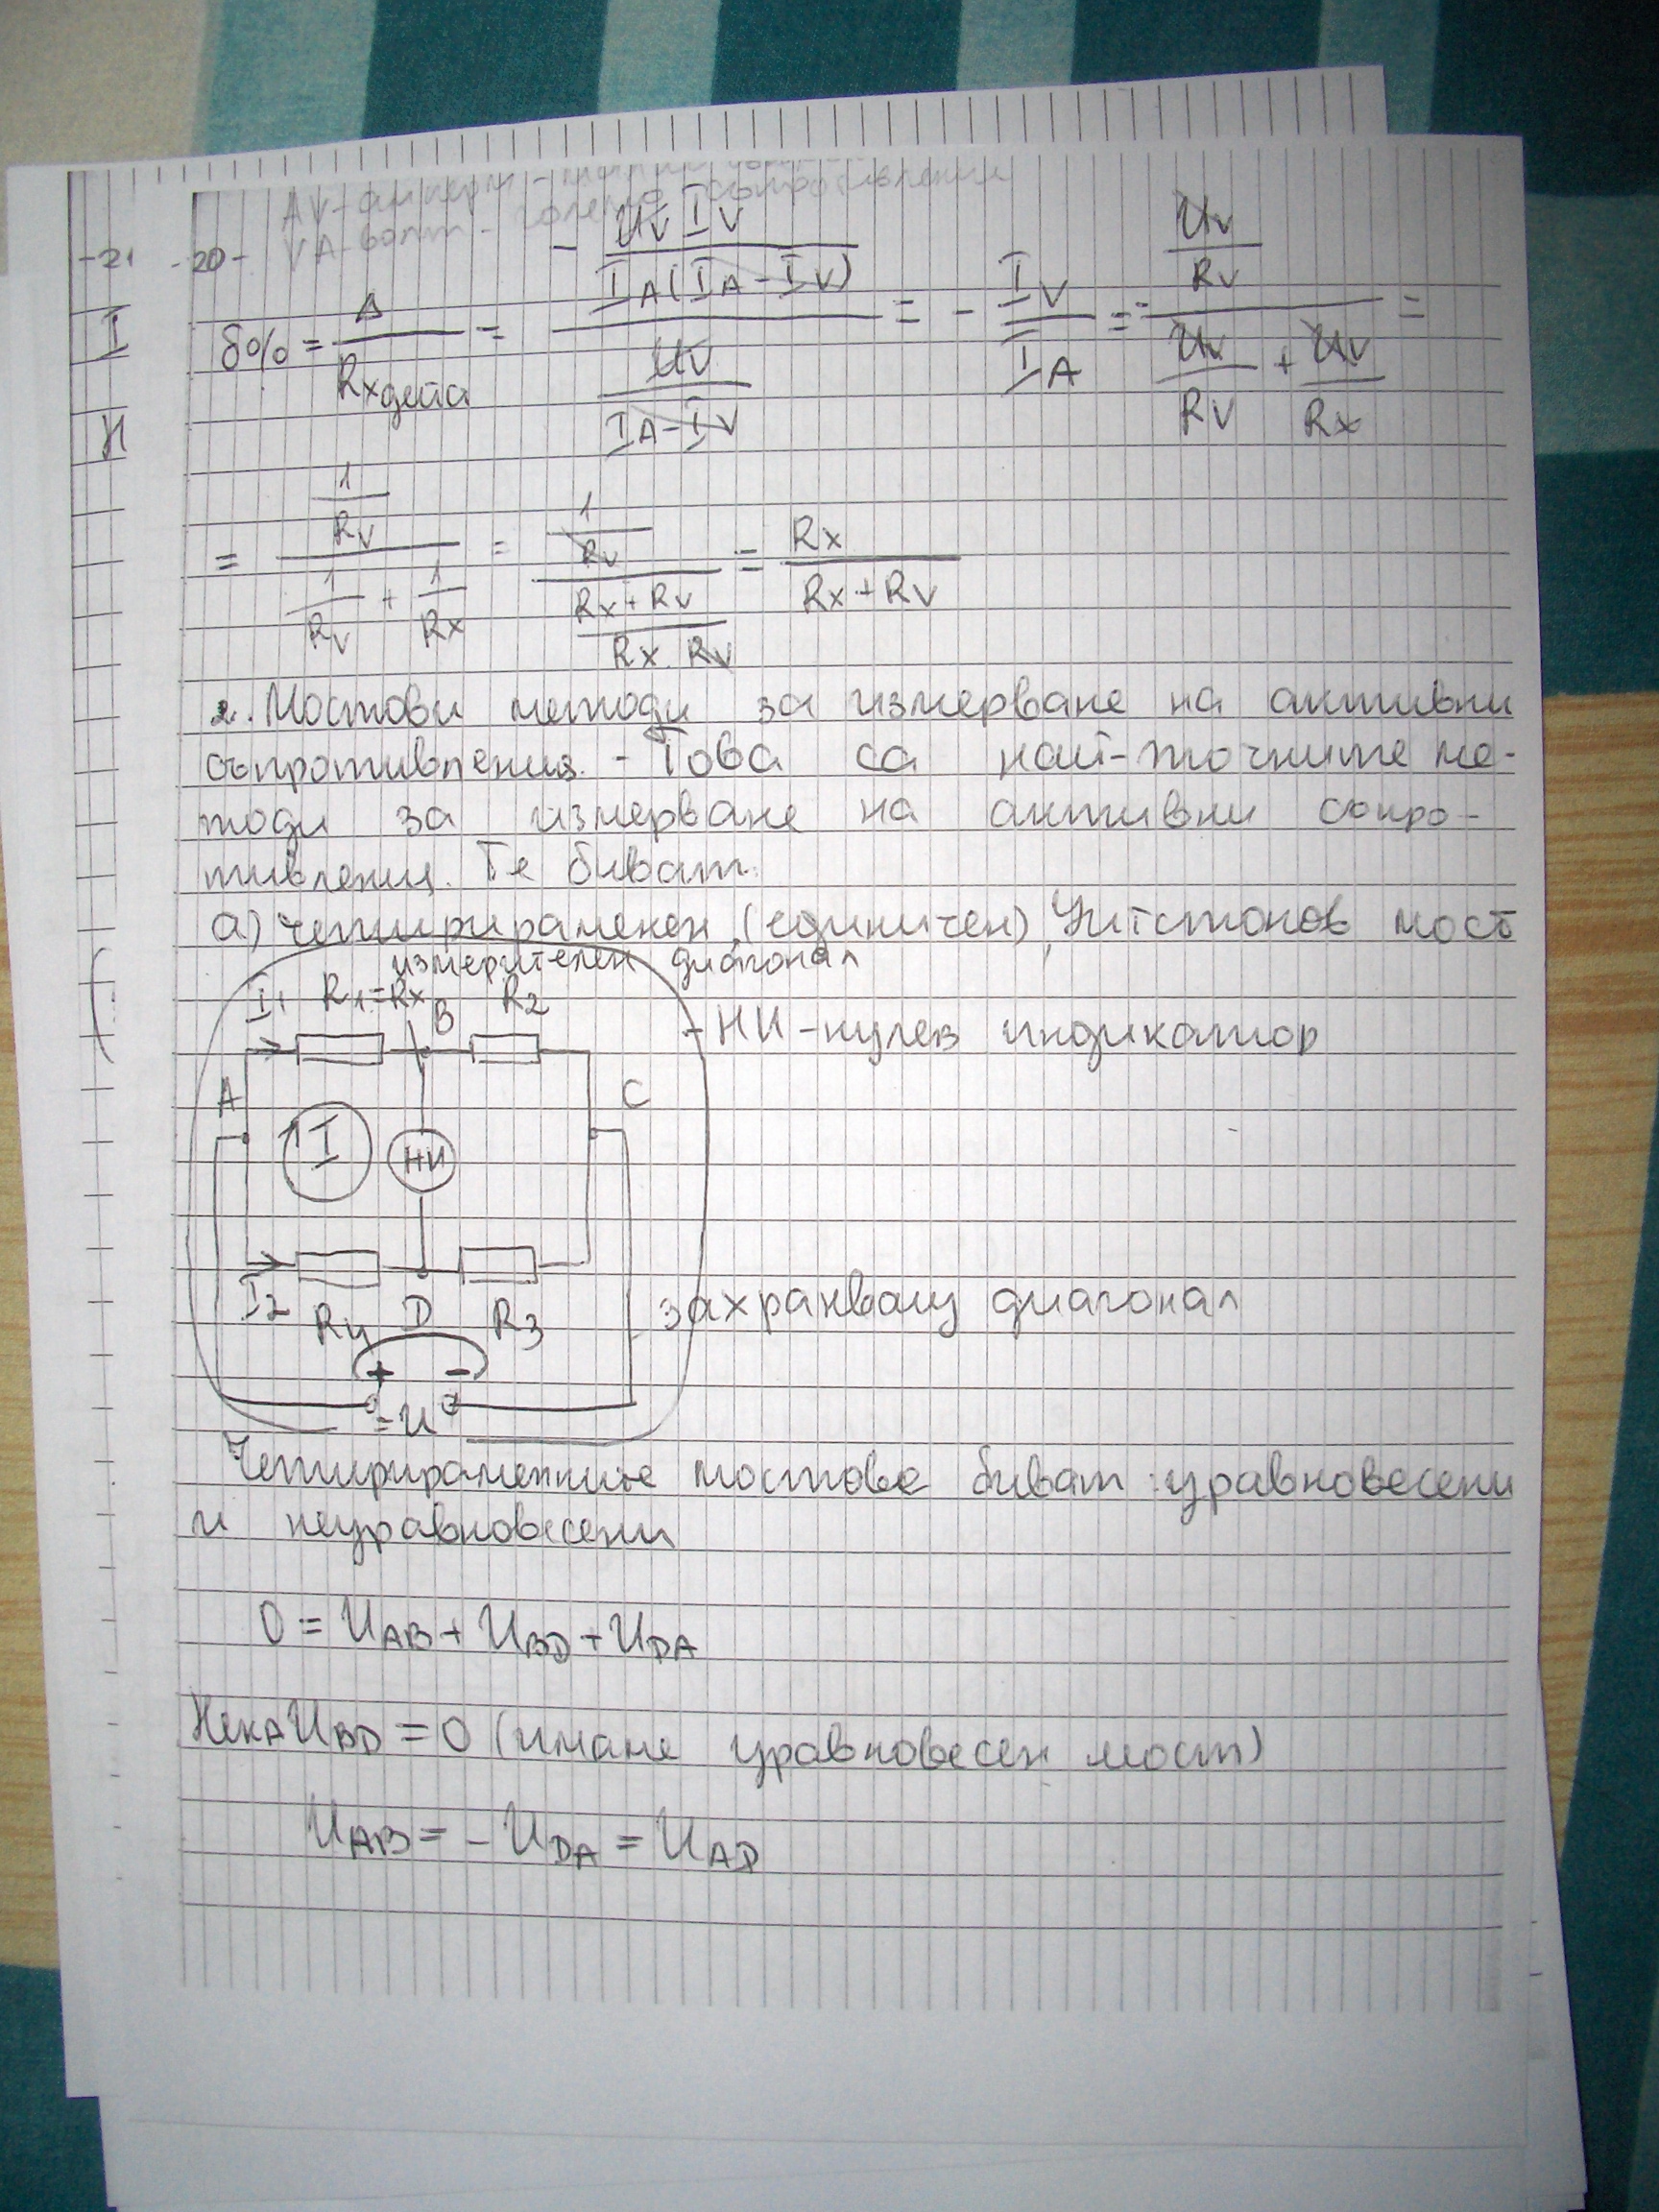 -21 -20-
I
H
δ% = Δ / Rx дейст = - (Uv Iv / IA(IA-Iv)) / (Uv / IA-Iv) = - Iv / IA = - (Uv / Rv) / (Uv / Rv + Uv / Rx) =
= (1 / Rv) / (1 / Rv + 1 / Rx) = (1 / Rv) / (Rx+Rv / Rx.Rv) = Rx / Rx+Rv
2. Мостови методи за измерване на активни
съпротивления. - Това са най-точните ме-
тоди за измерване на активни съпро-
тивления. Те биват:
а) четирираменен (единичен), Уитстонов мост
измерителен диагонал
I1 R1=Rx B R2
- НИ - нулев индикатор
A C
I НИ
I2 R4 D R3
захранващ диагонал
+ -
=U
Четирираменните мостове биват: уравновесени
и неуравновесени
0 = UAB + UBD + UDA
Нека UBD = 0 (имаме уравновесен мост)
UAB = - UDA = UAD